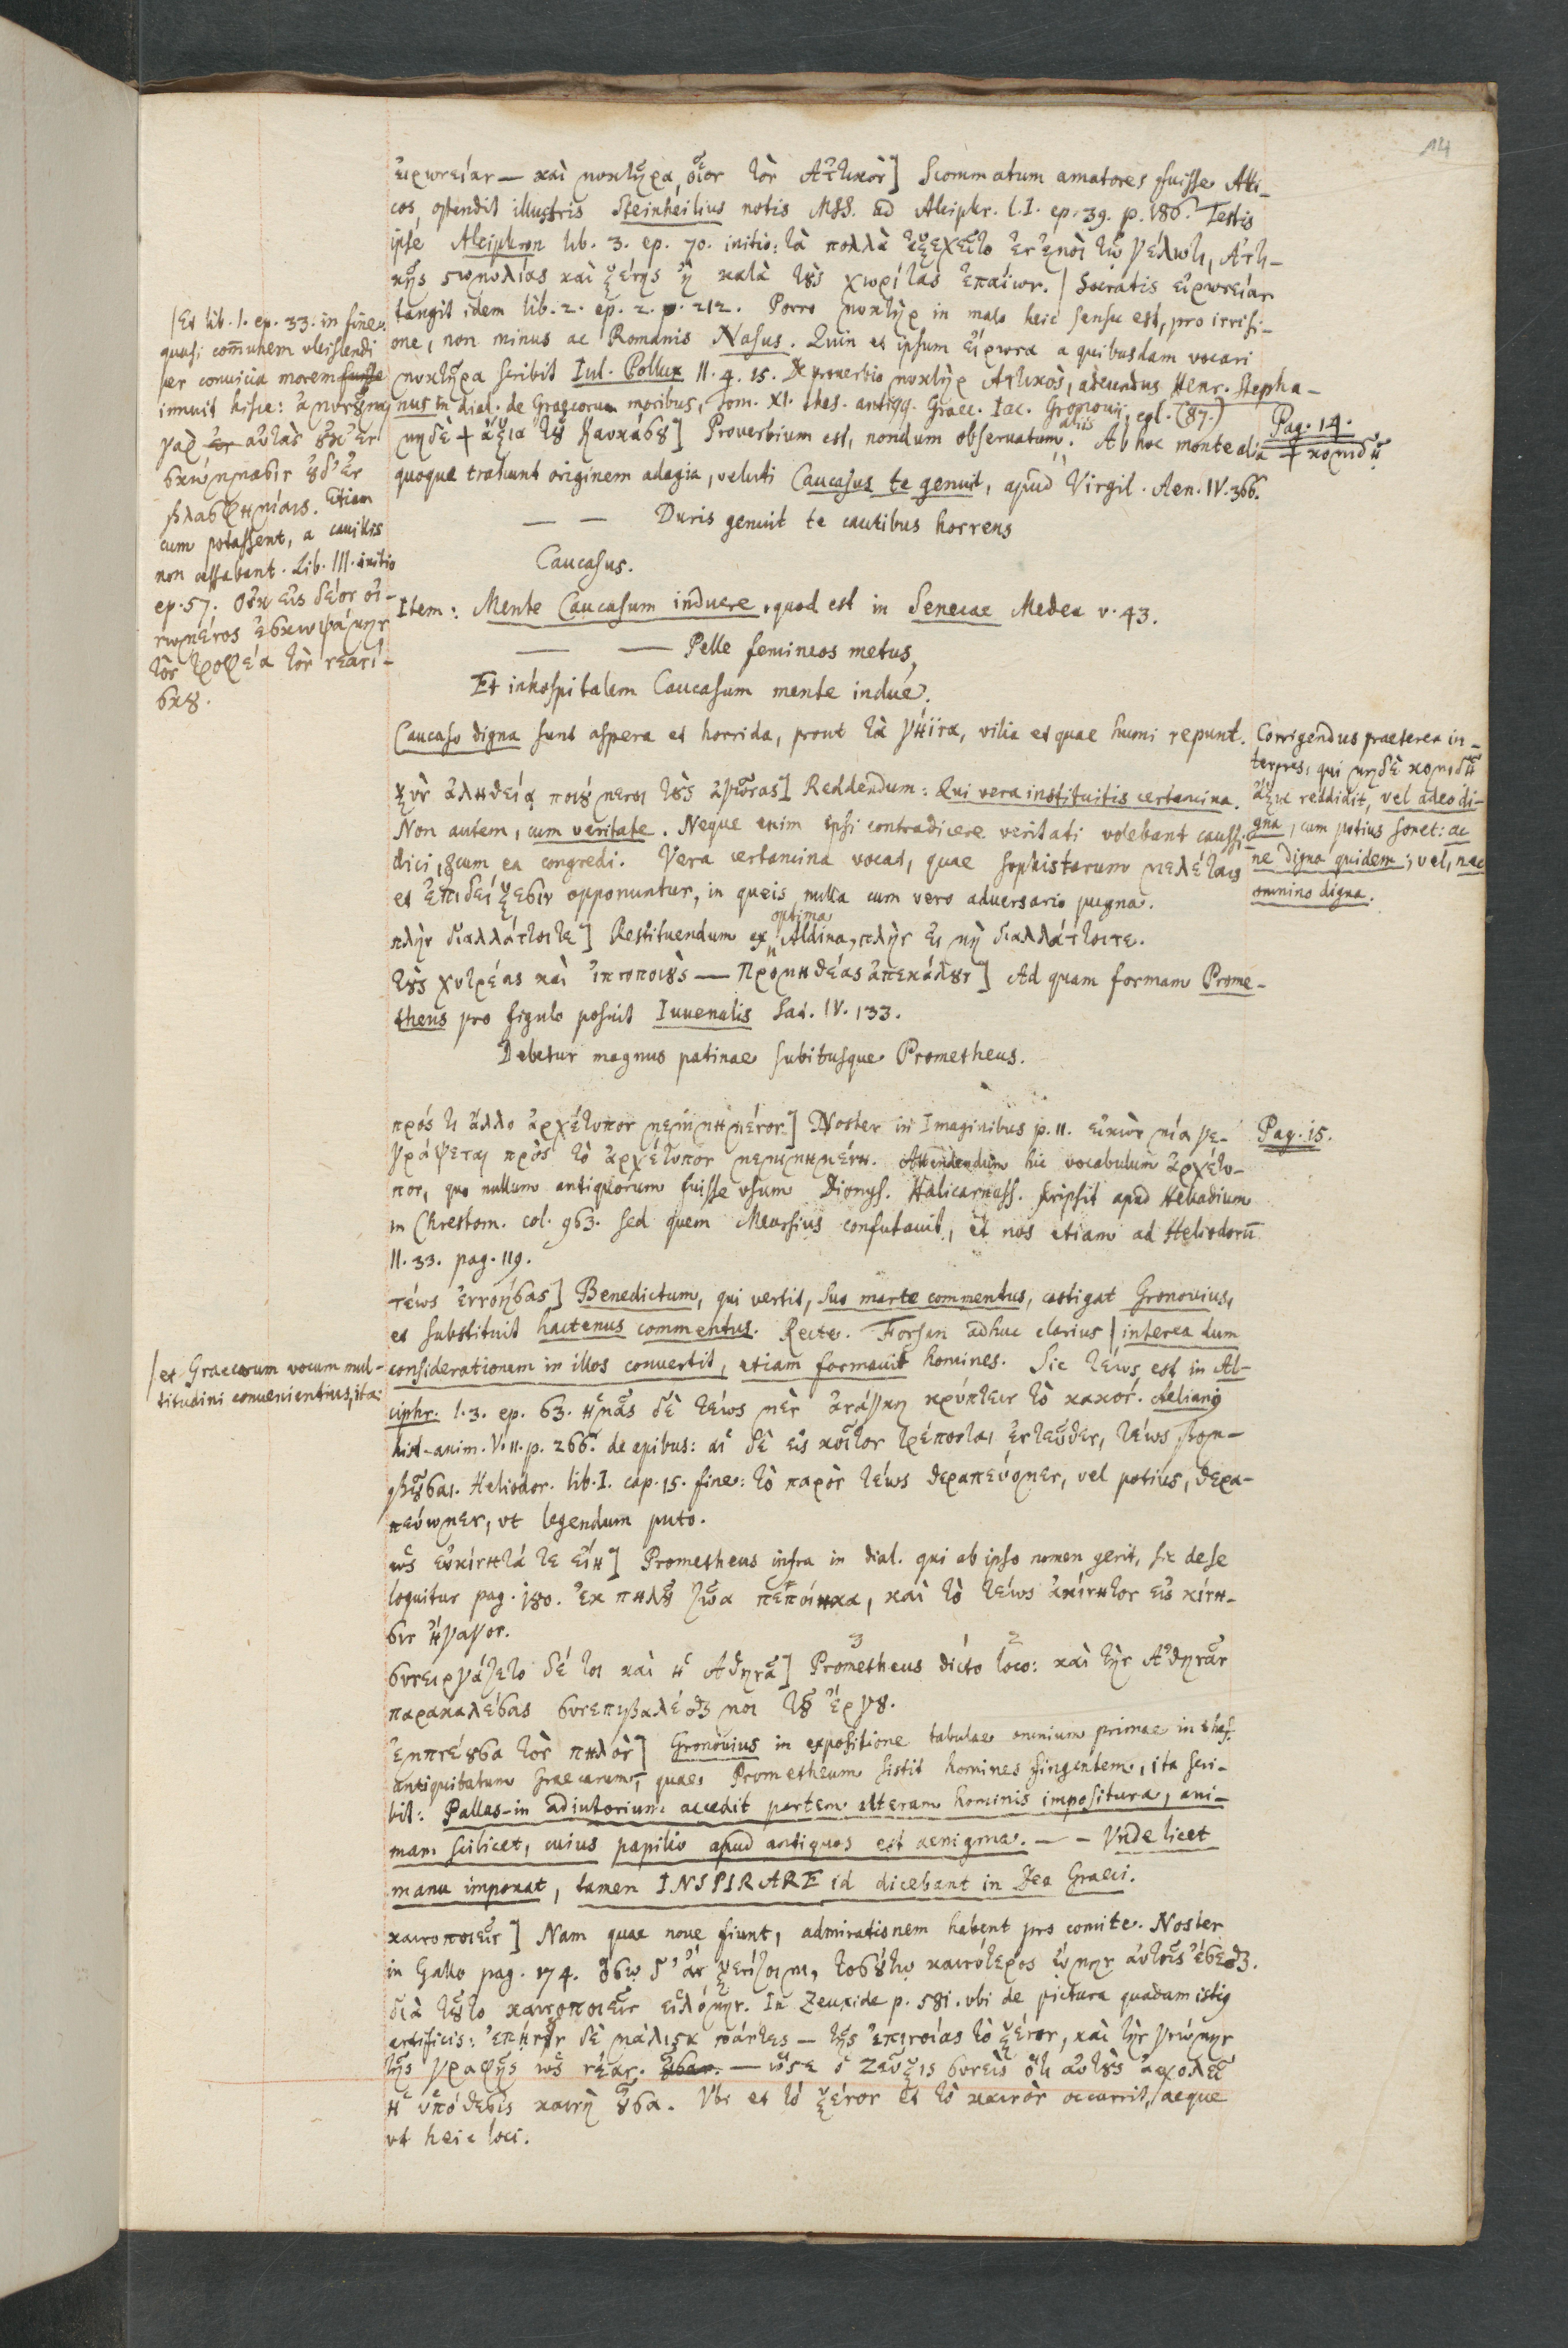 14
εἰρωνείαν — καὶ μυκτῆρα, οἷον τὸν Ἀττικὸν] Scommatum amatores fuisse Atti-
cos, ostendit illustris Steinheilius notis MSS. ad Alciphr. l. I. ep. 39. p. 186. Testis
ipse Alciphron lib. 3. ep. 70. initio: τὰ πολλὰ ἐξεχεῖτο ἐν ἐμοὶ τῷ γέλωτι, Ἀττι-
κῆς στωμυλίας καὶ ξένης ἢ κατὰ τοὺς χωρίτας ἐπαίων. | Socratis εἰρωνείαν
tangit idem lib. 2. ep. 2. p. 212. Porro μυκτὴρ in malo heic sensu est, pro irrisi-
one, non minus ac Romanis Nasus. Quin et ipsum εἴρωνα a quibusdam vocari
μυκτῆρα scribit Iul. Pollux II. 4. 15. De prouerbio μυκτὴρ Ἀττικὸς, adeundus Henr. Stepha-
nus in dial. de Graecorum moribus, tom. XI. thes. antiqq. Graec. Iac. Gronouii, col. (87.)
|Et lib. I. ep. 33. in fine
quasi com̄unem vlciscendi
per conuicia morem fuisse
innuit hisce: ἀμυνοῦμαι
γὰρ ἐν αὐτὰς οὐκ ἐν
σκώμμασιν οὐδ᾽ ἐν
βλασφημίαις. Etiam
cum potassent, a cauillis
non cessabant. Lib. III. initio
ep. 57. Οὐκ εἰς δέον οἰ-
νωμένος ἐσκωψάμην
τὸν τροφέα τὸν νεανί-
σκου.
Pag. 14.
μηδὲ + ἄξια τοῦ Καυκάσου] Proverbium est, nondum obseruatum aliis. Ab hoc monte alia + κομιδῆ
quoque trahunt originem adagia, veluti Caucasus te genuit, apud Virgil. Aen. IV. 366.
— — Duris genuit te cautibus horrens
Caucasus.
Item: Mente Caucasum induere, quod est in Senecae Medea v. 43.
— — Pelle femineos metus,
Et inhospitalem Caucasum mente indue.
Caucaso digna sunt aspera et horrida, prout τὰ γήινα, vilia et quae humi repunt.
Corrigendus praeterea in-
terpres, qui μηδὲ κομιδῆ
ἄξια reddidit, vel adeo di-
gna, cum potius sonet: ac
ne digna quidem; vel, nec
omnino digna.
ξὺν ἀληθείᾳ ποιούμενοι τοὺς ἀγῶνας] Reddendum: Qui vera instituitis certamina.
Non autem, cum veritate. Neque enim ipsi contradicere veritati volebant caussi-
dici, & cum ea congredi. Vera certamina vocat, quae sophistarum μελέταις
et ἐπιδείξεσιν opponuntur, in queis nulla cum vero aduersario pugna.
πλὴν διαλλάττοιτε] Restituendum ex optima Aldina, πλὴν εἰ μὴ διαλλάττοιτε.
τοὺς χυτρέας καὶ ἰπνοποιοὺς — Προμηθέας ἀπεκάλουν] Ad quam formam Prome-
theus pro figulo posuit Iuuenalis Sat. IV. 133.
Debetur magnus patinae subitusque Prometheus.
πρός τι ἄλλο ἀρχέτυπον μεμιμημένον] Noster in Imaginibus p. 11. εἰκὼν μία γε-
Pag. 15.
γράψεται πρὸς τὸ ἀρχέτυπον μεμιμημένη. Attendendum hic vocabulum ἀρχέτυ-
πον, quo nullum antiquorum fuisse vsum Dionys. Halicarnass. scripsit apud Helladium
in Chrestom. col. 963. sed quem Meursius confutauit, et nos etiam ad Heliodorū
II. 33. pag. 119.
τέως ἐννοήσας] Benedictum, qui vertit, suo marte commentus, castigat Gronouius,
et substituit hactenus commentus. Recte. Forsan adhuc clarius | interea dum
|et Graecorum vocum mul-
titudini conuenientius, ita:
considerationem in illos convertit, etiam formauit homines. Sic τέως est in Al-
ciphr. l. 3. ep. 63. ἡμᾶς δὲ τέως μὲν ἀνάγκη κρύπτειν τὸ κακόν. Aelianus
hist. anim. V. 11. p. 266. de apibus: αἱ δὲ εἰς κοῖτον τρέπονται ἐντεῦθεν, τέως βομ-
βοῦσαι. Heliodor. lib. I. cap. 15. fine: τὸ παρὸν τέως θεραπεύομεν, vel potius, θερα-
πεύωμεν, vt legendum puto.
ὡς εὐκίνητά τε εἴη] Prometheus infra in dial. qui ab ipso nomen gerit, sic de se
loquitur pag. 180. ἐκ πηλοῦ ζῶα πεποίηκα, καὶ τὸ τέως ἀκίνητον εἰς κίνη-
σιν ἤγαγον.
συνειργάζετο δέ τοι καὶ ἡ Ἀθηνᾶ] Prometheus dicto loco: καὶ τὴν Ἀθηνᾶν
παρακαλέσας συνεπιβαλέσθαι μοι τοῦ ἔργου.
ἐμπνέουσα τὸν πηλὸν] Gronouius in expositione tabulae omnium primae in thes.
antiquitatum graecarum, quae Prometheum sistit homines fingentem, ita scri-
bit: Pallas in adiutorium accedit partem alteram hominis impositura, ani-
mam scilicet, cuius papilio apud antiquos est aenigma. — — Vnde licet
manu imponat, tamen INSPIRARE id dicebant in Dea Graeci.
καινοποιεῖν] Nam quae noue fiunt, admirationem habent pro comite. Noster
in Gallo pag. 174. ὅσῳ δ᾽ ἂν ξενίζοιμι, τοσούτῳ καινότερος ᾤμην αὐτοῖς ἔσεσθαι.
διὰ τοῦτο καινοποιεῖν εἱλόμην. In Zeuxide p. 581. vbi de pictura quadam istius
artificis: ἐπῄνουν δὲ μάλιστα πάντες — τῆς ἐπινοίας τὸ ξένον, καὶ τὴν γνώμην
τῆς γραφῆς ὡς νέαν. — ὥστε ὁ Ζεῦξις συνεὶς ὅτι αὐτοὺς ἀσχολεῖ
ἡ ὑπόθεσις καινὴ οὖσα. Vbi et τὸ ξένον et τὸ καινὸν occurrit, aeque
vt heic loci.